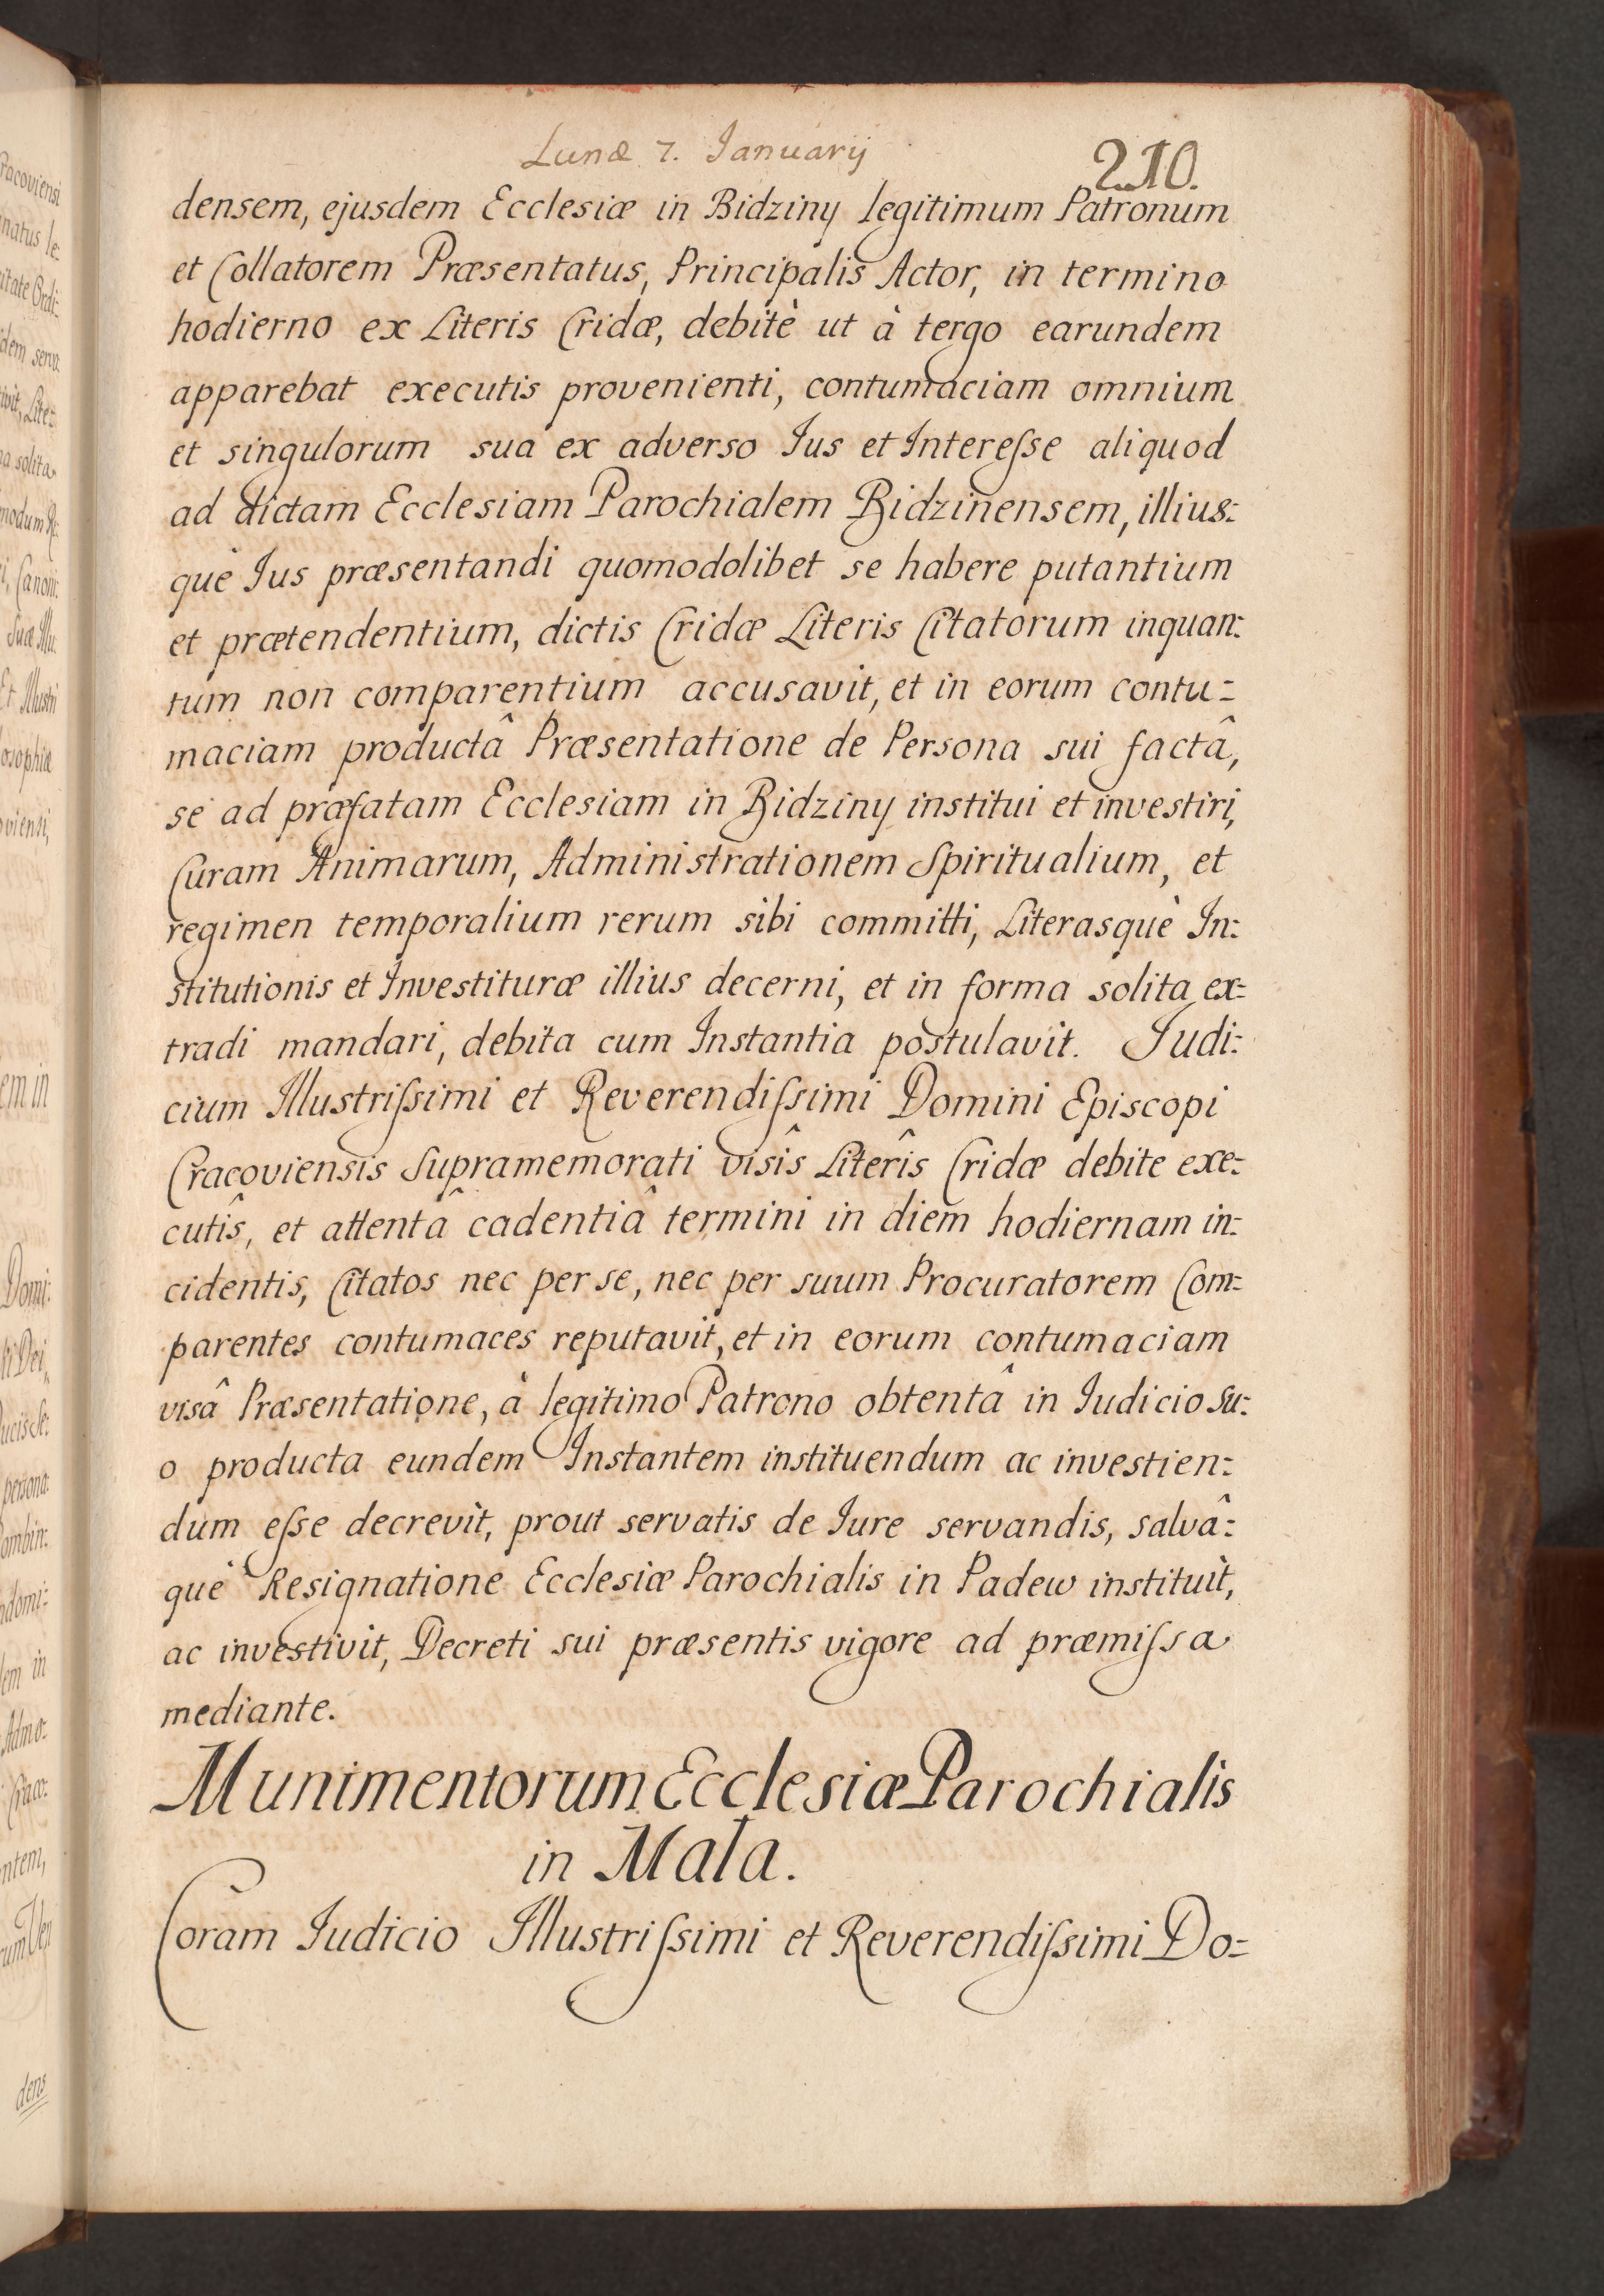 Lunæ 7. Ianuarij
210.
densem, ejusdem Ecclesiæ in Bidziny legitimum Patronum
et Collatorem Præsentatus, Principalis Actor, in termino
hodierno ex Literis Cridæ, debitè ut à tergo earundem
apparebat executis provenienti, contumaciam omnium
et singulorum sua ex adverso Ius et Intereſse aliquod
ad dictam Ecclesiam Parochialem Bidzinensem, illius:
què Ius præsentandi quomodolibet se habere putantium
et prætendentium, dictis Cridæ Literis Citatorum inquan:
tum non comparentium accusavit, et in eorum contu:
maciam productâ Præsentatione de Persona sui factâ,
se ad præfatam Ecclesiam in Bidziny institui et investiri,
Curam Animarum, Administrationem Spiritualium, et
regimen temporalium rerum sibi committi, Literasquè In:
stitutionis et Investituræ illius decerni, et in forma solita ex:
tradi mandari, debita cum Instantia postulavit. Iudi:
cium Illustriſsimi et Reverendiſsimi Domini Episcopi
Cracoviensis Supramemorati visîs Literîs Cridæ debite exe:
cutîs, et attentâ cadentiâ termini in diem hodiernam in:
cidentis, Citatos nec per se, nec per suum Procuratorem Com:
parentes contumaces reputavit, et in eorum contumaciam
visâ Præsentatione, à legitimo Patrono obtentâ in Iudicio su:
o producta eundem Instantem instituendum ac investien:
dum eſse decrevit, prout servatis de Iure servandis, salvâ:
què Resignatione Ecclesiæ Parochialis in Padew instituìt,
ac investivit, Decreti sui præsentis vigore ad præmiſsa
mediante.
Munimentorum Ecclesiæ Parochialis
in Mala.
Coram Iudicio Illustriſsimi et Reverendiſsimi Do: